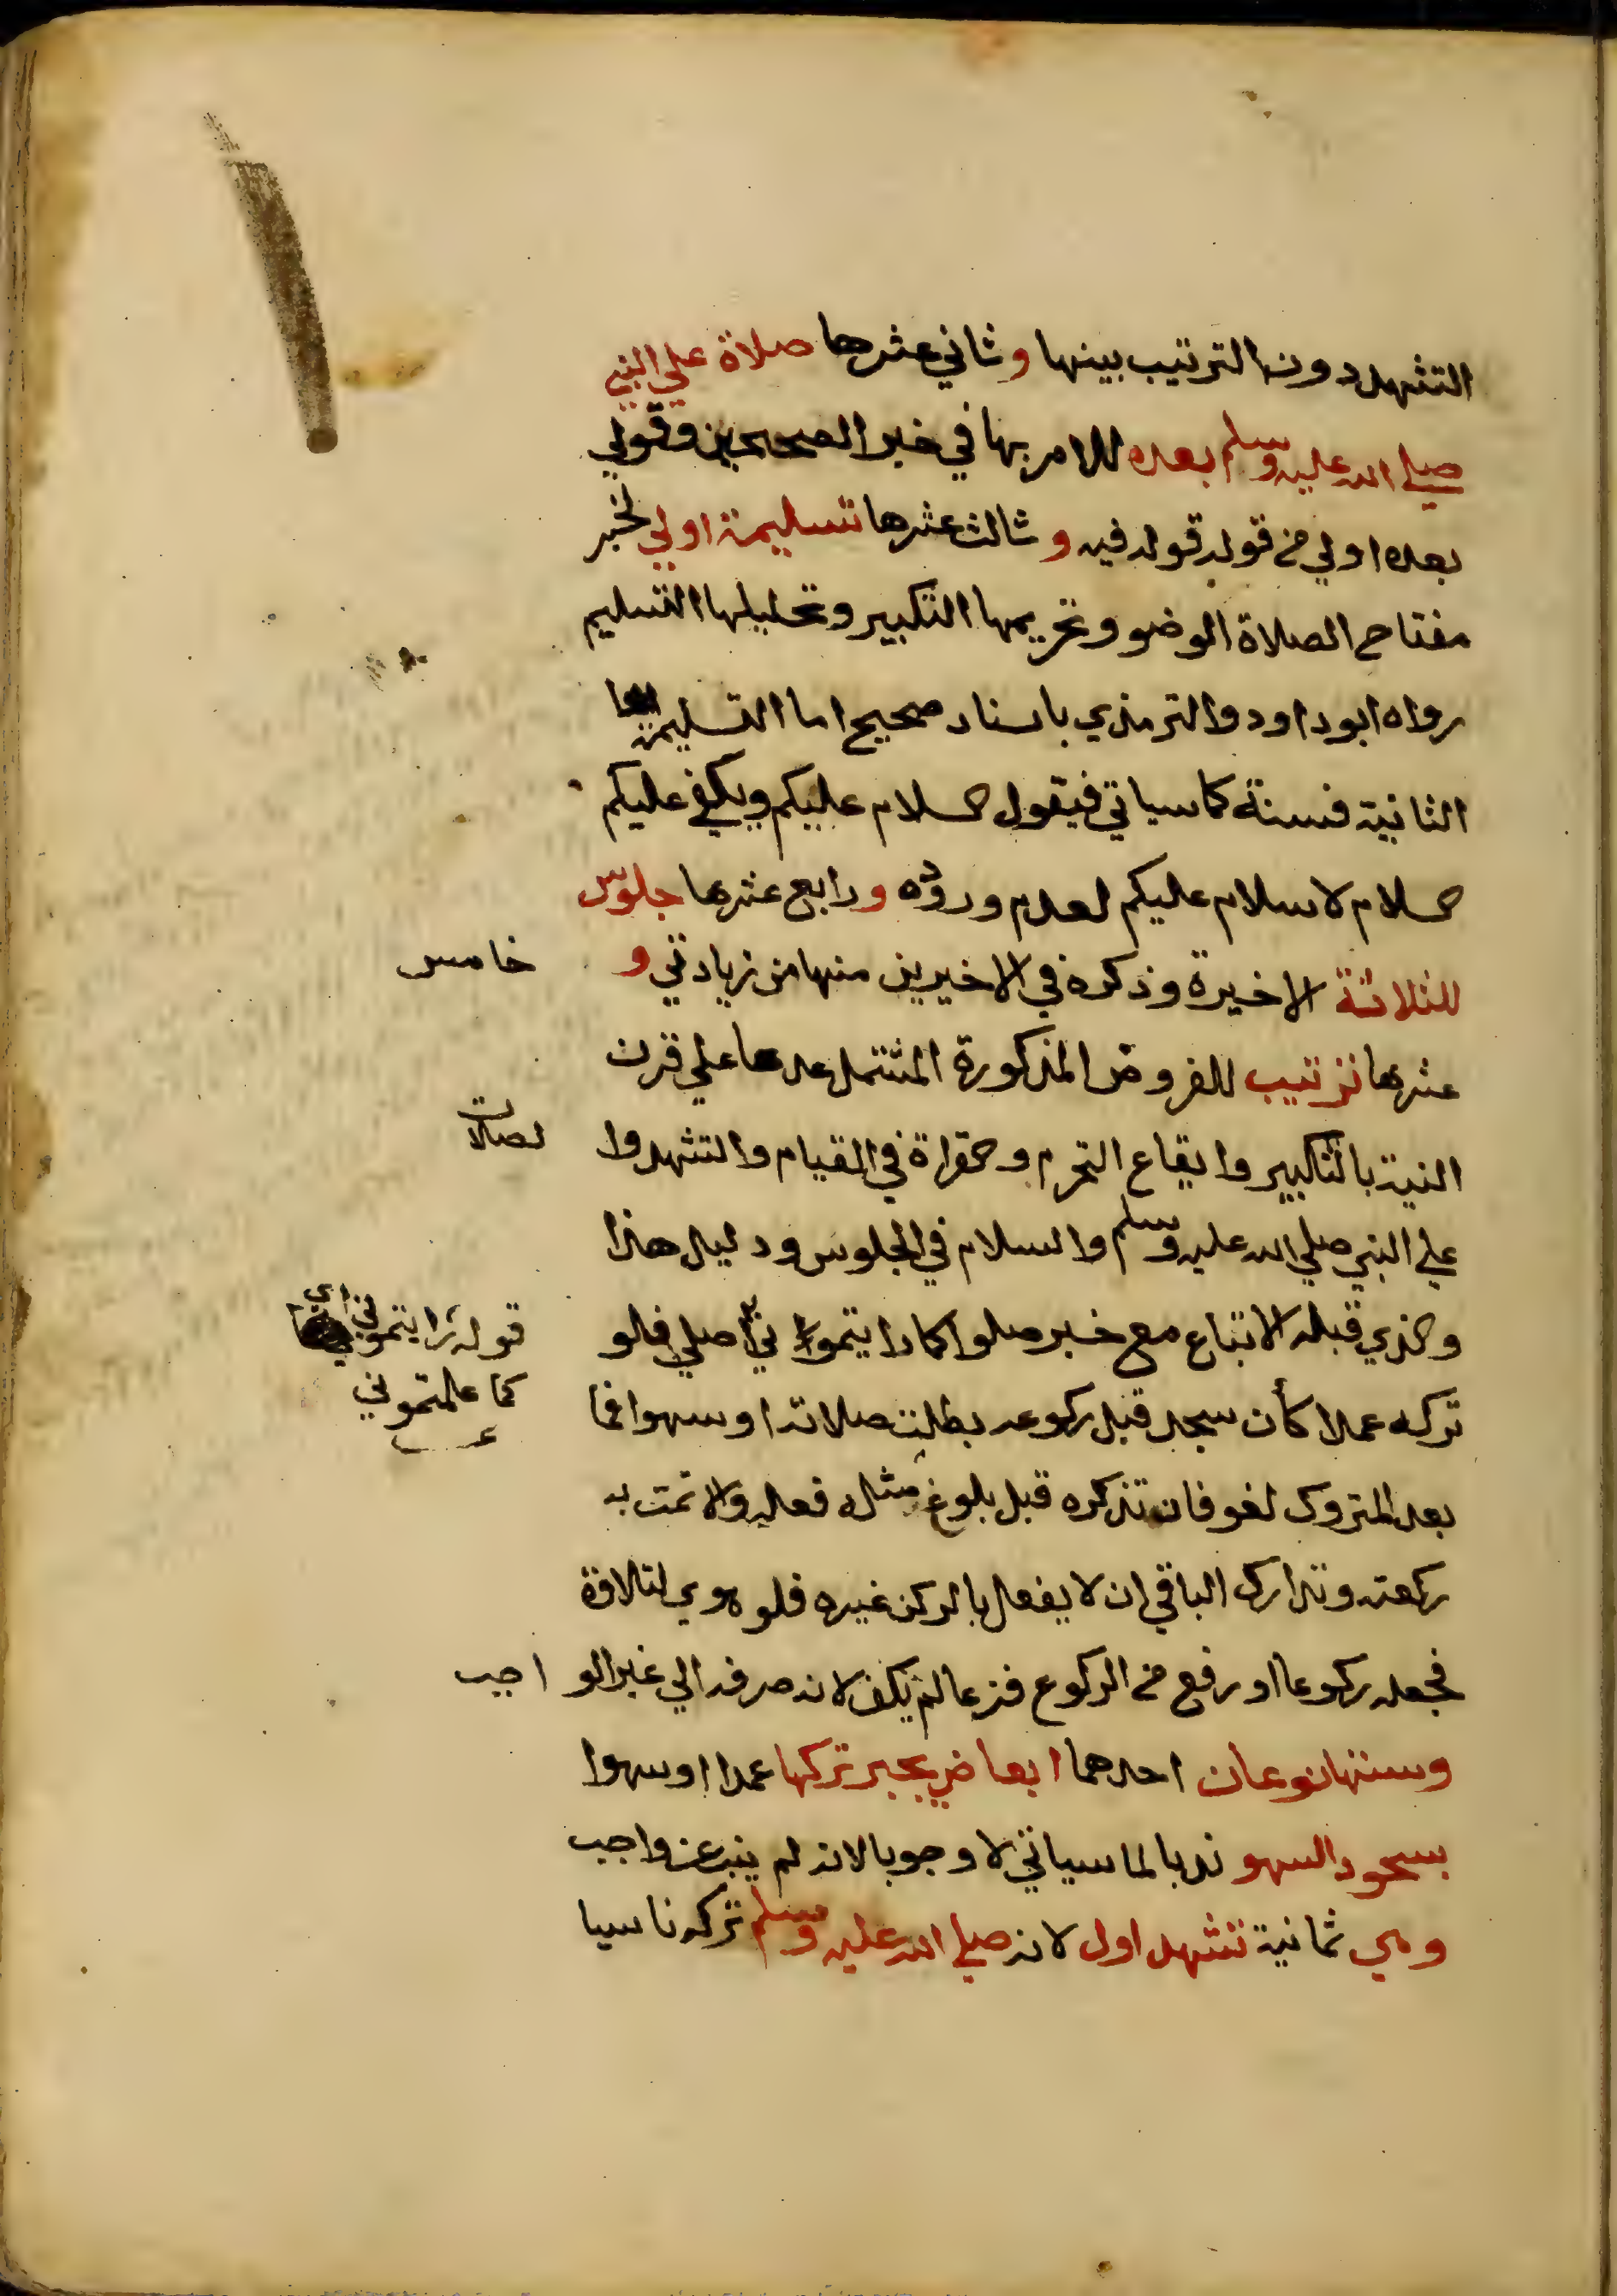 التشهد دون الترتيب بينها وثاني عشرها صلاة علي النبي
صلي الله عليه وسلم بعده للامر بها في خبر الصحيحين وقولي
بعده اولي من قوله قوله فيه وثالث عشرها تسليمة اولي لخبر
مفتاح الصلاة الوضو وتحريمها التكبير وتحليلها التسليم
رواه ابو داود والترمذي باسناد صحيح اما التسليمة
الثانية فسنة كما سياتي فيقول السلام عليكم ويكفي عليكم
السلام لا سلام عليكم لعدم وروده ورابع عشرها جلوس
للثلاثة الاخيرة وذكره في الاخيرين منها من زيادتي و خامس
عشرها ترتيب للفروض المذكورة المشتمل عدها علي قرن
النية بالتكبير وايقاع التحرم والقراة في القيام والتشهد وا لصلات
علي النبي صلي الله عليه وسلم والسلام في الجلوس ودليل هذا
والذي قبله الاتباع مع خبر صلوا كما رايتموني اصلي فلو
تركه عمدا كأن سجد قبل ركوعه بطلت صلاته او سهوا فما
بعد المتروك لغو فان تذكره قبل بلوغ مثله فعله والا تمت به
ركعته وتدارك الباقي ان لا يفعل بالركن غيره فلو هوي لتلاوة
فجعله ركوعا او رفع من الركوع فزعا لم يكف لانه صرفه الي غير الو اجب
وسننها نوعان احدهما ابعاض يجبر تركها عمدا او سهوا
بسجود السهو ندبا لما سياتي لا وجوبا لانه لم ينب عن واجب
وهي ثمانية تشهد اول لانه صلي الله عليه وسلم تركه ناسيا
قوله رايتموني اي
كما علمتموني